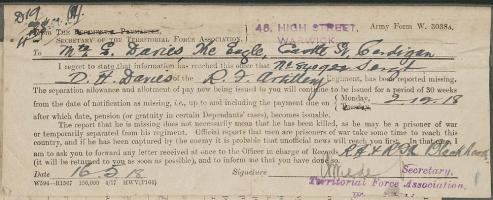 Army Form W. 3038A.
From THE
SECRETARY OF THE TERRITORIAL FORCE ASSOCIATION,
48, HIGH STREET,
WARWICK.
To Mrs E. Davies The Eagle, Castle St, Cardigan
I regret to state that information has reached this office that No
D. H. Davies of the R. F. Artillery Regiment, has been reported missing.
The separation allowance and allotment of pay now being issued to you will continue to be issued for a period of 30 weeks
from the date of notification as missing, i.e., up to and including the payment due on Monday, 2.12.18
after which date, pension (or gratuity in certain Dependants' cases), becomes issuable.
The report that he is missing does not necessarily mean that he has been killed, as he may be a prisoner of war
or temporarily separated from his regiment. Official reports that men are prisoners of war take some time to reach this
country, and if he has been captured by the enemy it is probable that unofficial news will reach you first. In that case, I
am to ask you to forward any letter received at once to the Officer in charge of Records, Blackheath
(it will be returned to you as soon as possible), and to inform me that you have done so.
Date 16.5.18 Signature
Secretary,
Territorial Force Association.